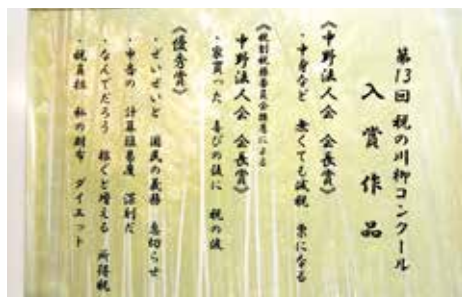 第13回 税の川柳コンクール
入賞作品
《中野法人会 会長賞》
・中身など 無くても減税 票になる
《税制税務委員会推薦による
中野法人会 会長賞》
・家買った 喜びの後に 税の波
《優秀賞》
・ぜいぜいと 国民の義務 息切らせ
・申告の 計算難易度 深刻だ
・なんでだろう 稼ぐと増える 所得税
・税負担 私の財布 ダイエット